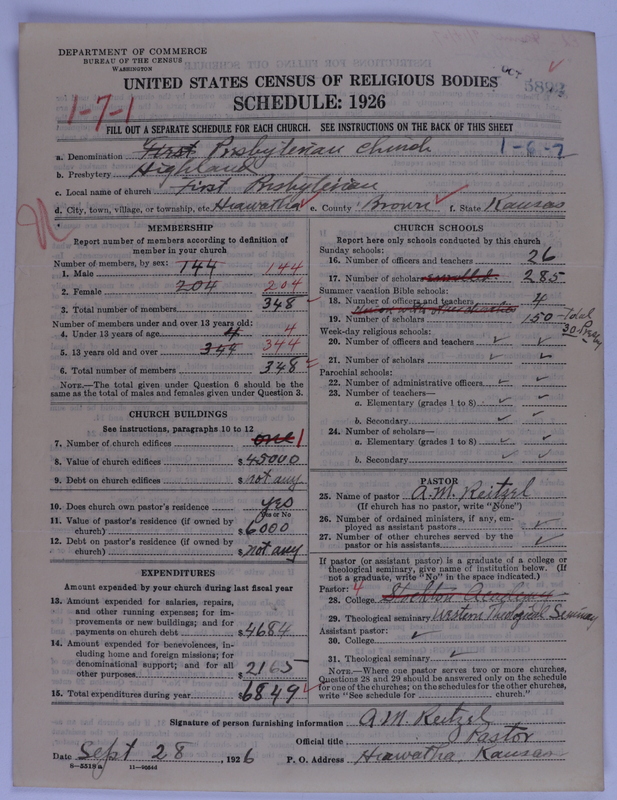 DEPARTMENT OF COMMERCE
BUREAU OF THE CENSUS
WASHINGTON
UNITED STATES CENSUS OF RELIGIOUS BODIES
OCT 3892
SCHEDULE: 1926
1-7-1
FILL OUT A SEPARATE SCHEDULE FOR EACH CHURCH. SEE INSTRUCTIONS ON THE BACK OF THIS SHEET
a. Denomination First Presbyterian Church 1-6-7
b. Presbytery Highland
c. Local name of church First Presbyterian
d. City, town, village, or township, etc. Hiawatha e. County Brown f. State Kansas
MEMBERSHIP
Report number of members according to definition of member in your church
Number of members, by sex:
1. Male 144 144
2. Female 204 204
3. Total number of members 348
Number of members under and over 13 years old:
4. Under 13 years of age 4 4
5. 13 years old and over 344 344
6. Total number of members 348
NOTE.—The total given under Question 6 should be the same as the total of males and females given under Question 3.
CHURCH BUILDINGS
See instructions, paragraphs 10 to 12
7. Number of church edifices one 1
8. Value of church edifices $ 45000
9. Debt on church edifices $ not any
10. Does church own pastor's residence yes
Yes or No
11. Value of pastor's residence (if owned by church) $ 6000
12. Debt on pastor's residence (if owned by church) $ not any
EXPENDITURES
Amount expended by your church during last fiscal year
13. Amount expended for salaries, repairs, and other running expenses; for improvements or new buildings; and for payments on church debt $ 4684
14. Amount expended for benevolences, including home and foreign missions; for denominational support; and for all other purposes $ 2165
15. Total expenditures during year $ 6849
CHURCH SCHOOLS
Report here only schools conducted by this church
Sunday schools:
16. Number of officers and teachers 26
17. Number of scholars enrolled. 285
Summer vacation Bible schools:
18. Number of officers and teachers 4
19. Number of scholars 150 Total
30-Presby
Week-day religious schools:
20. Number of officers and teachers
21. Number of scholars
Parochial schools:
22. Number of administrative officers
23. Number of teachers—
a. Elementary (grades 1 to 8)
b. Secondary
24. Number of scholars—
a. Elementary (grades 1 to 8)
b. Secondary
PASTOR
25. Name of pastor A. M. Reitzel
(If church has no pastor, write "None")
26. Number of ordained ministers, if any, employed as assistant pastors
27. Number of other churches served by the pastor or his assistants
If pastor (or assistant pastor) is a graduate of a college or theological seminary, give name of institution below. (If not a graduate, write "No" in the space indicated.)
Pastor: 4
28. College Stockton Academy
29. Theological seminary Western Theological Seminary
Assistant pastor:
30. College
31. Theological seminary
NOTE.—Where one pastor serves two or more churches, Questions 28 and 29 should be answered only on the schedule for one of the churches; on the schedules for the other churches, write "See schedule for ______ church."
Signature of person furnishing information A. M. Reitzel
Official title Pastor
Date Sept 28, 1926 P. O. Address Hiawatha, Kansas
8-5518a 11-9084d